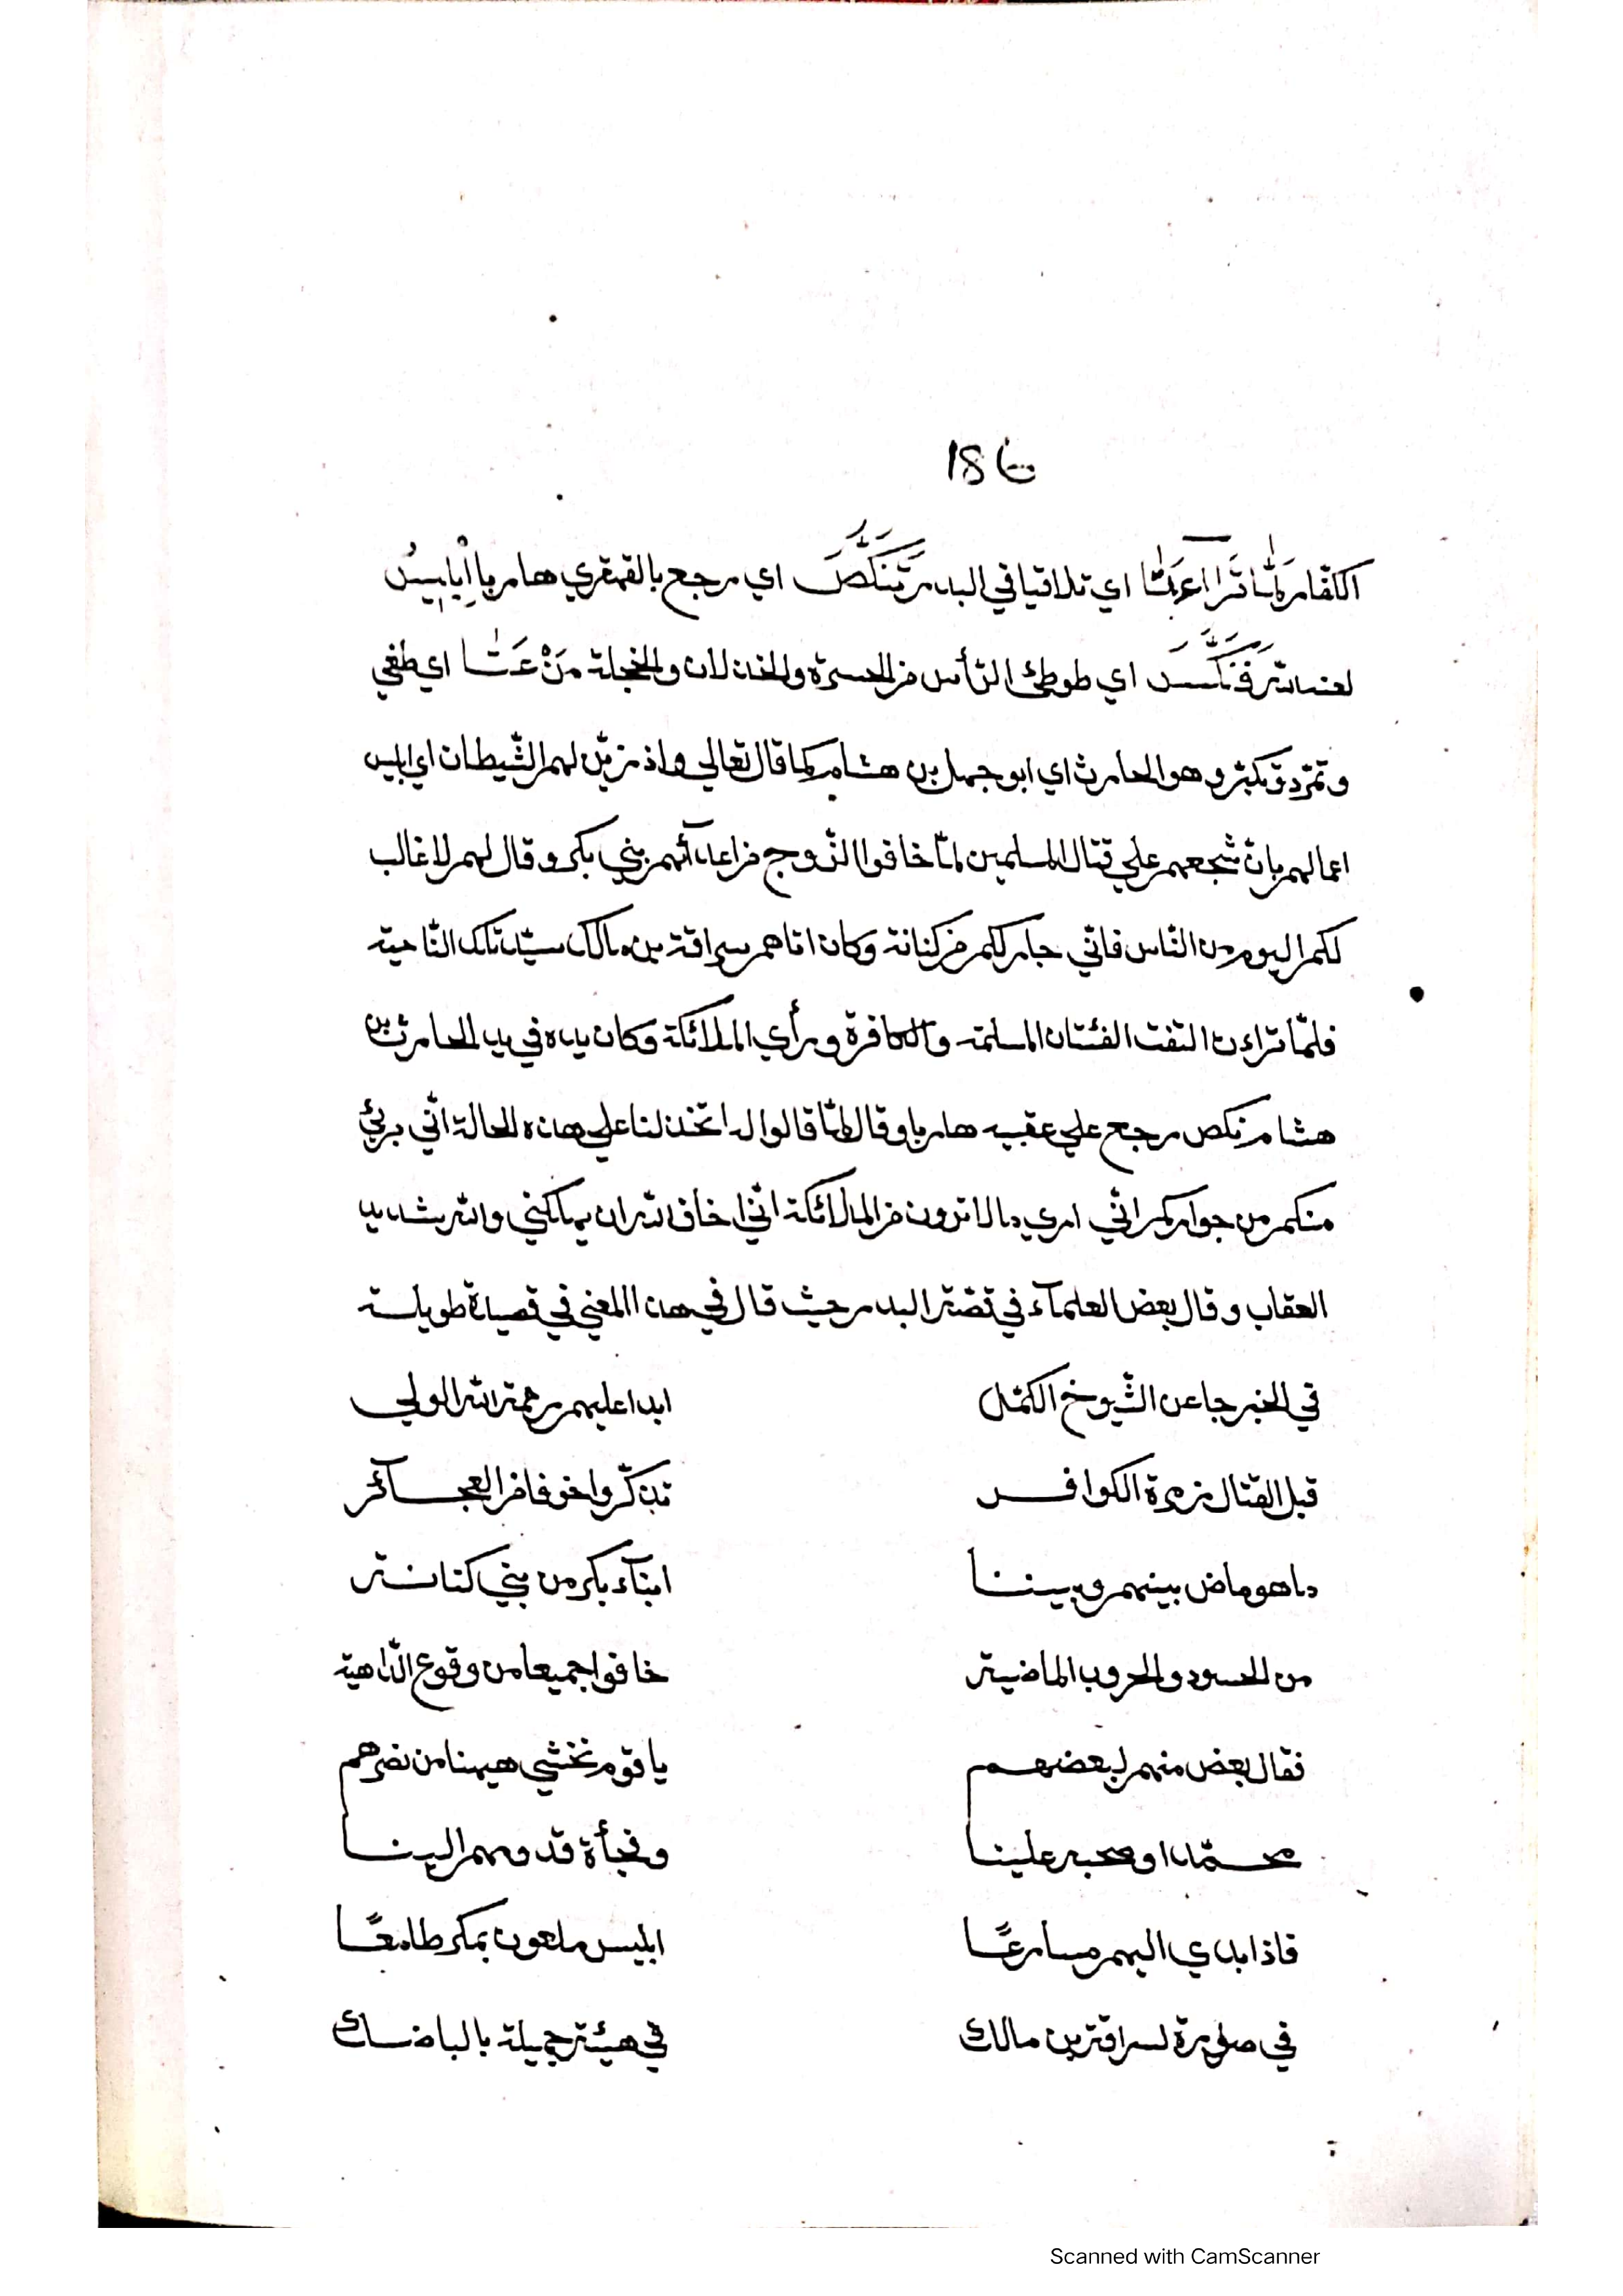 18
الكفار لَمَّا تَرَااءَتَا اي تلاقيا في البدر تَنَكَّصَ اي رجع بالقهقري هاربا اِبْلِيسُ
لعنه الله فَنَكَّسَ اي طوطئ الرّأس من الحسرة والخذلان والخجلة مَنْ عَتَا اي طغي
وتمرّد وتكبّر وهو الحارث اي ابو جهل بن هشام كما قال تعالي واذ زيّن لهم الشّيطان اي ابليس
اعمالهم بان شجعهم علي قتال المسلمين لمّا خافوا الخروج من اعدآئهم بني بكر وقال لهم لا غالب
لكم اليوم من النّاس فانّي جار لكم من كنانة وكان اتاهم سراقة بن مالك سيّد تلك النّاحية
فلمّا تراءت التفت الفئتان المسلمة والكافرة ورأي الملائكة وكان يده في يد الحارث بن
هشام نكص رجع علي عقبيه هاربا وقال لمّا قالوا له اتخذلنا علي هذه الحالة انّي برئ
منكم من جواركم انّي اري ما لا ترون من الملائكة انّي اخاف الله ان يهلكني والله شديد
العقاب وقال بعض العلمآء في قصّة البدر حيث قال في هذا المعني في قصيدة طويلة
في الخبر جا عن الشّيوخ الكمّل ابدا عليهم رحمة الله الولي
قبل القتال زمرة الكوافر تذكّروا خوفا من العجآئر
ما هو ماض بينهم وبيننا ابنآء بكر من بني كنانة
من الحسود والحروب الماضية خافوا جميعا من وقوع الدّاهية
فقال بعض منهم لبعضهم يا قوم نخشي هيهنا من نصرهم
محمّدا وصحبه علينا وفجأة قدومهم الينا
فاذا بدي اليهم مسارعًا ابليس ملعون بمكر طامعًا
في صورة لسراقة بن مالك في هيئة جميلة بالباضاك
Scanned with CamScanner